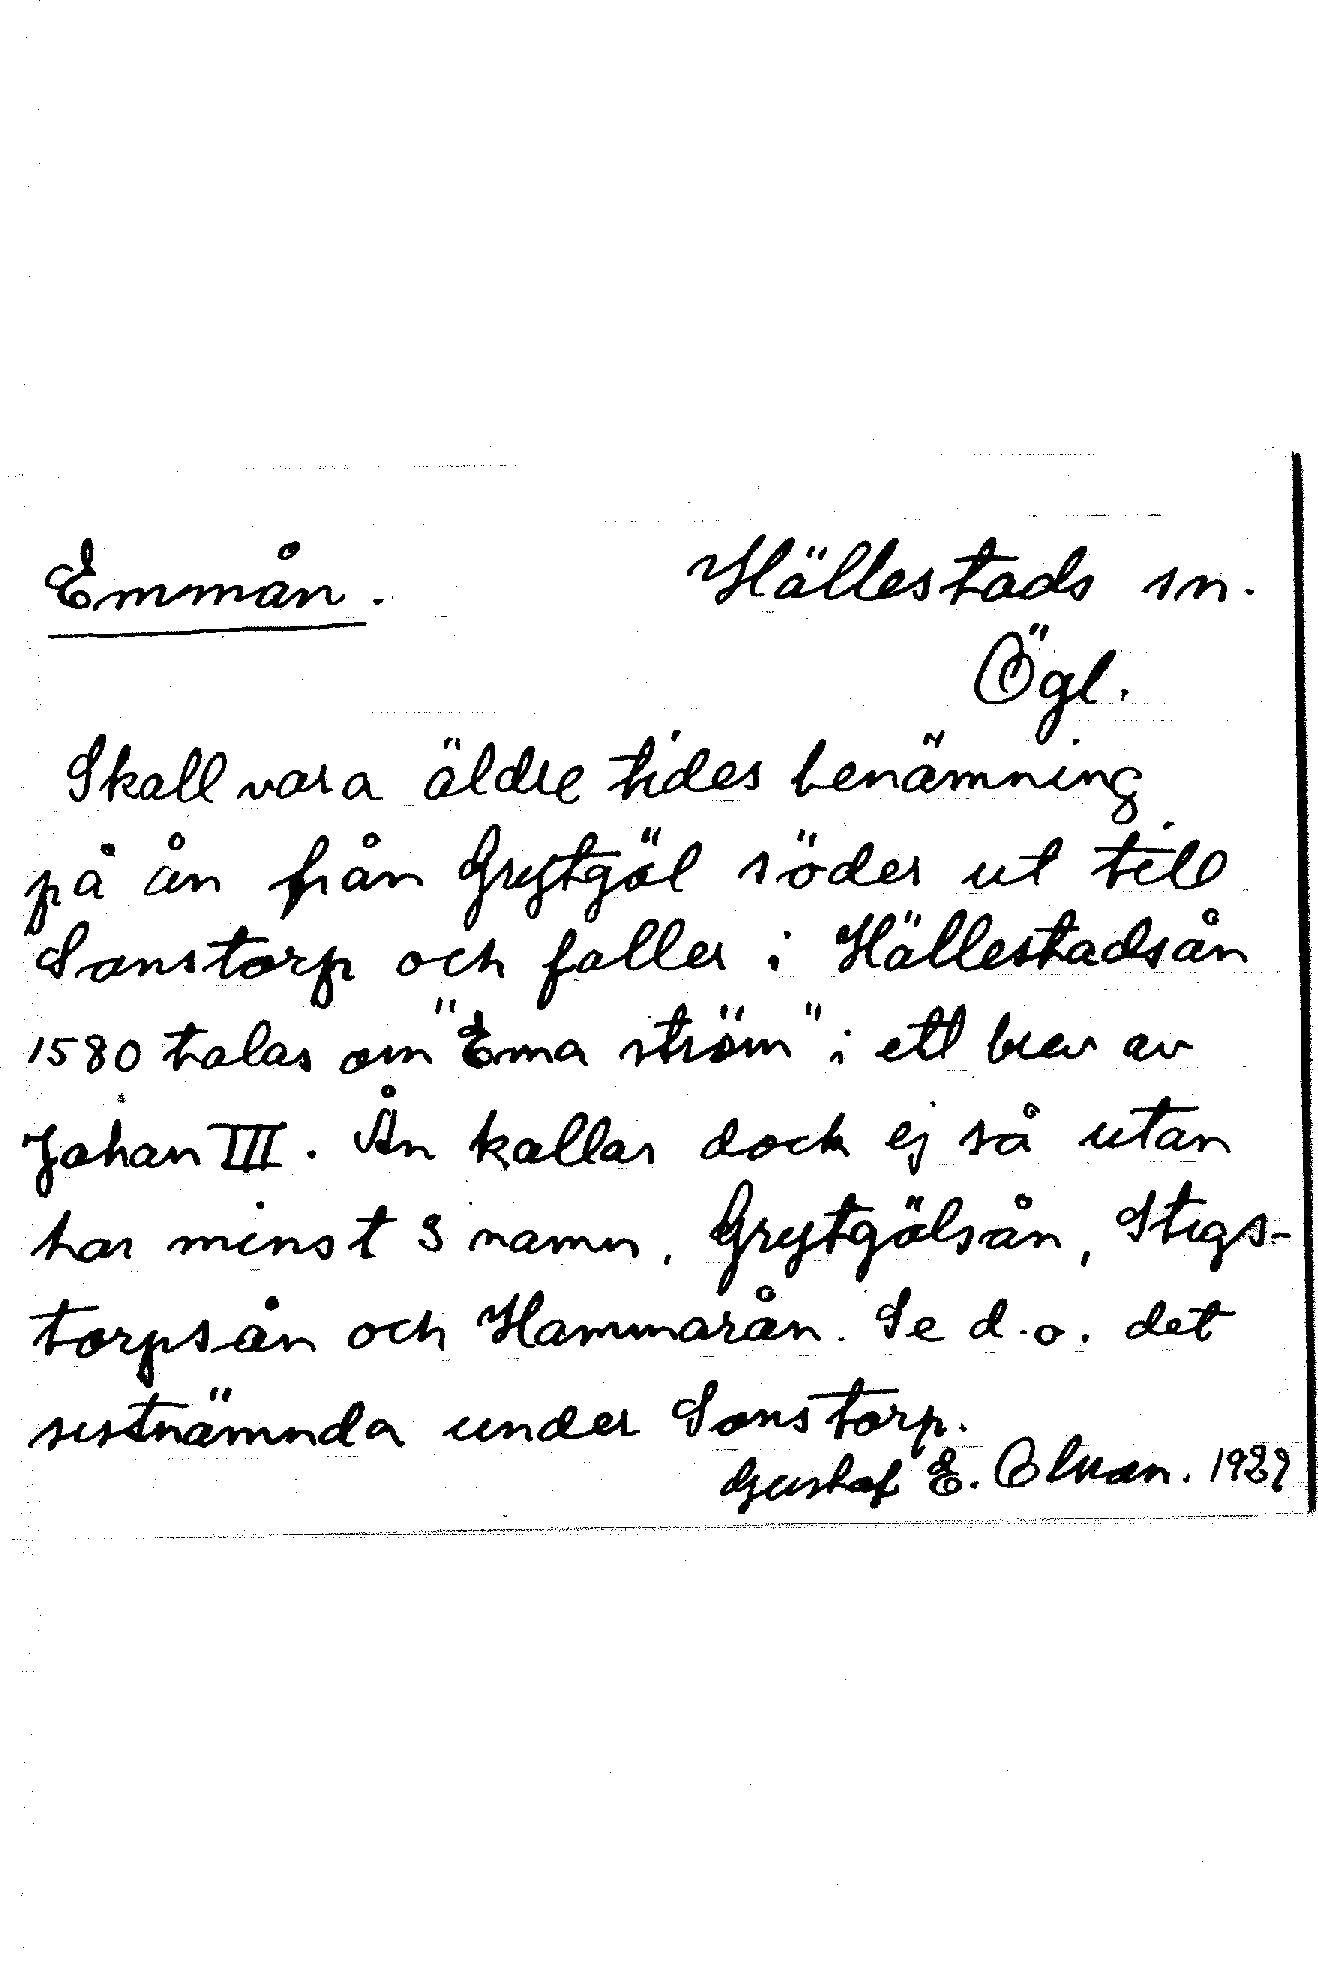 Emmån. Hällestads sn.
Ögl.
Skall vara äldre tides benämning
på ån från Grytgöl söder ut till
Sonstorp och faller i Hällestadsån
1580 talas om "Ema ström" i ett brev av
Johan III. Ån kallas dock ej så utan
har minst 3 namn, Grytgölsån, Stigs-
torpsån och Hammarån. Se d.o. det
sistnämnda under Sonstorp.
Gustaf E. 1929